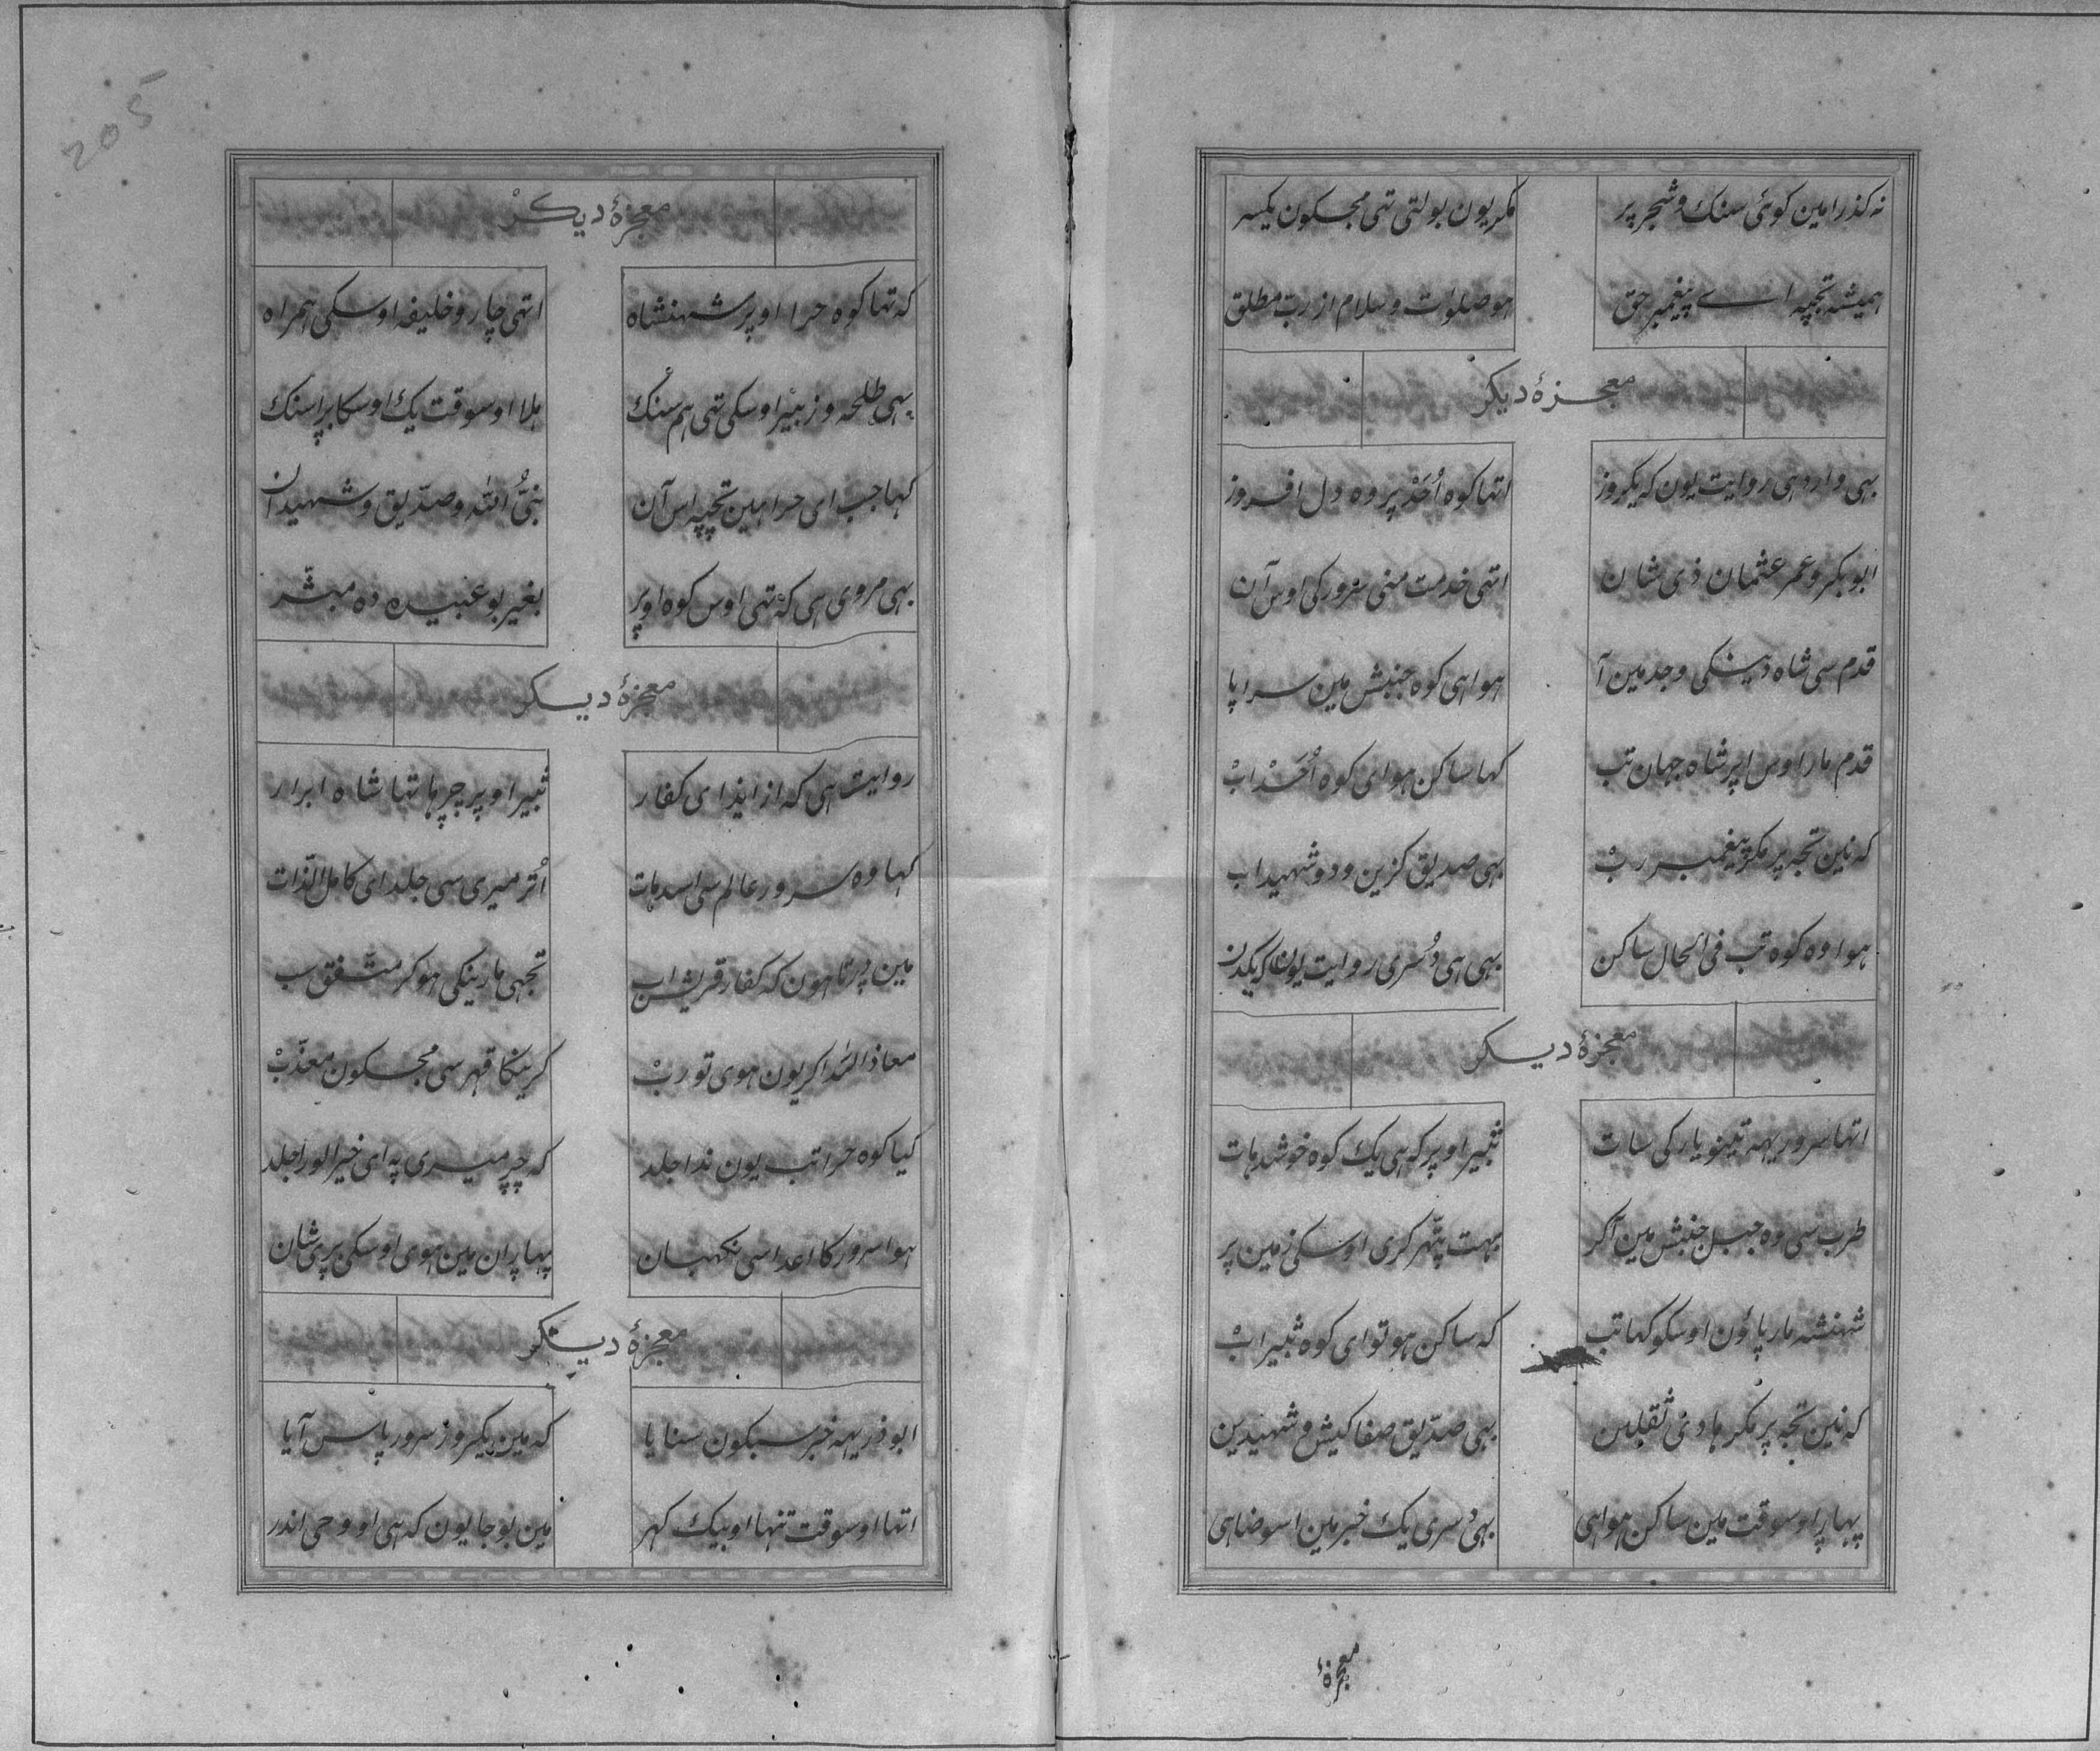 نه کذرا مین کوئی سنک و شجر پر مکر یون بولتی تهی مجسکون یکسر
همیشه تجهپه اے پیغمبر حق هو صلوات و سلام از رب مطلق
معجزۀ دیکر
بهی وارد هی روایت یون که یکروز اتها کوه اُحَدْ پر وه دل افروز
ابوبکر و عمر عثمان ذی شان اتهی خدمت منی سرور کی اوس آن
قدم سی شاه دینکی وجد مین آ هوا هی کوه جنبش مین سراپا
قدم مارا اوس اپر شاه جهان تب کها ساکن هو ای کوه اُحَدْ ابْ
که نین تجه پر مکر پیغمبر ربْ بهی صدیق کزین و دو شهید اب
هوا وه کوه تب فی الحال ساکن بهی هی دُسری روایت یون که یکدن
معجزۀ دیسکر
اتها سرور یهه تینو یار کی سات ثبیر اوپر که هی یک کوه خوشدهات
طرب سی وه جبل جنبش مین آکر بهت پتّهر کری اوسکی زمین پر
شهنشه مار پاؤن اوسکو کها تب که ساکن هو تو ای کوه ثبیر ابْ
که نین تجه پر مکر هادئ ثقلین بهی صدّیق صفا کیش و شهیدین
پهاڑ اوسوقت مین ساکن هوا هی بهی دُسری یک خبر مین اسوضا هی
معجزۀ
205
معجزۀ دیکرْ
که تها کوه حرا اوپر شهنشاه اتهی چارو خلیفه اوسکی همراه
بهی طلحه و زبیر اوسکی تهی هم سنک هلا اوسوقت یک اوسکا بڑا سنک
کها جب ای حرا هین تجهپه اس آن نبیُّ الله و صدّیق و شهیدان
بهی مروی هی که تهی اوس کوه اوپر بغیر بو عبیده ده مبشّر
معجزۀ دیسکر
روایت هی که از ایذای کفار ثبیر اوپر چڑها تها شاه ابرار
کها وه سرور عالم سی اسدهات اُتر میری سی جلد ای کامل الذّات
مین ڈرتا هون که کفار قریش اب تجهی مارینکی هوکر متّفق سب
معاذ الله اکر یون هوی تو ربْ کریکا قهر سی مجسکون معذّبْ
کیا کوه حرا تب یون ندا جلد که چڑ میری په ای خیر الورا جلد
هوا سرور کا اعدا سی نکهبان پهاڑان مین هوی اوسکی بڑی شان
معجزۀ دیسکر
ابوذر یهه خبر سبکون سنایا که مین یکروز سرور پاس آیا
اتها اوسوقت تنها او بیک کهر مین بوجا یون که هی او وحی اندر